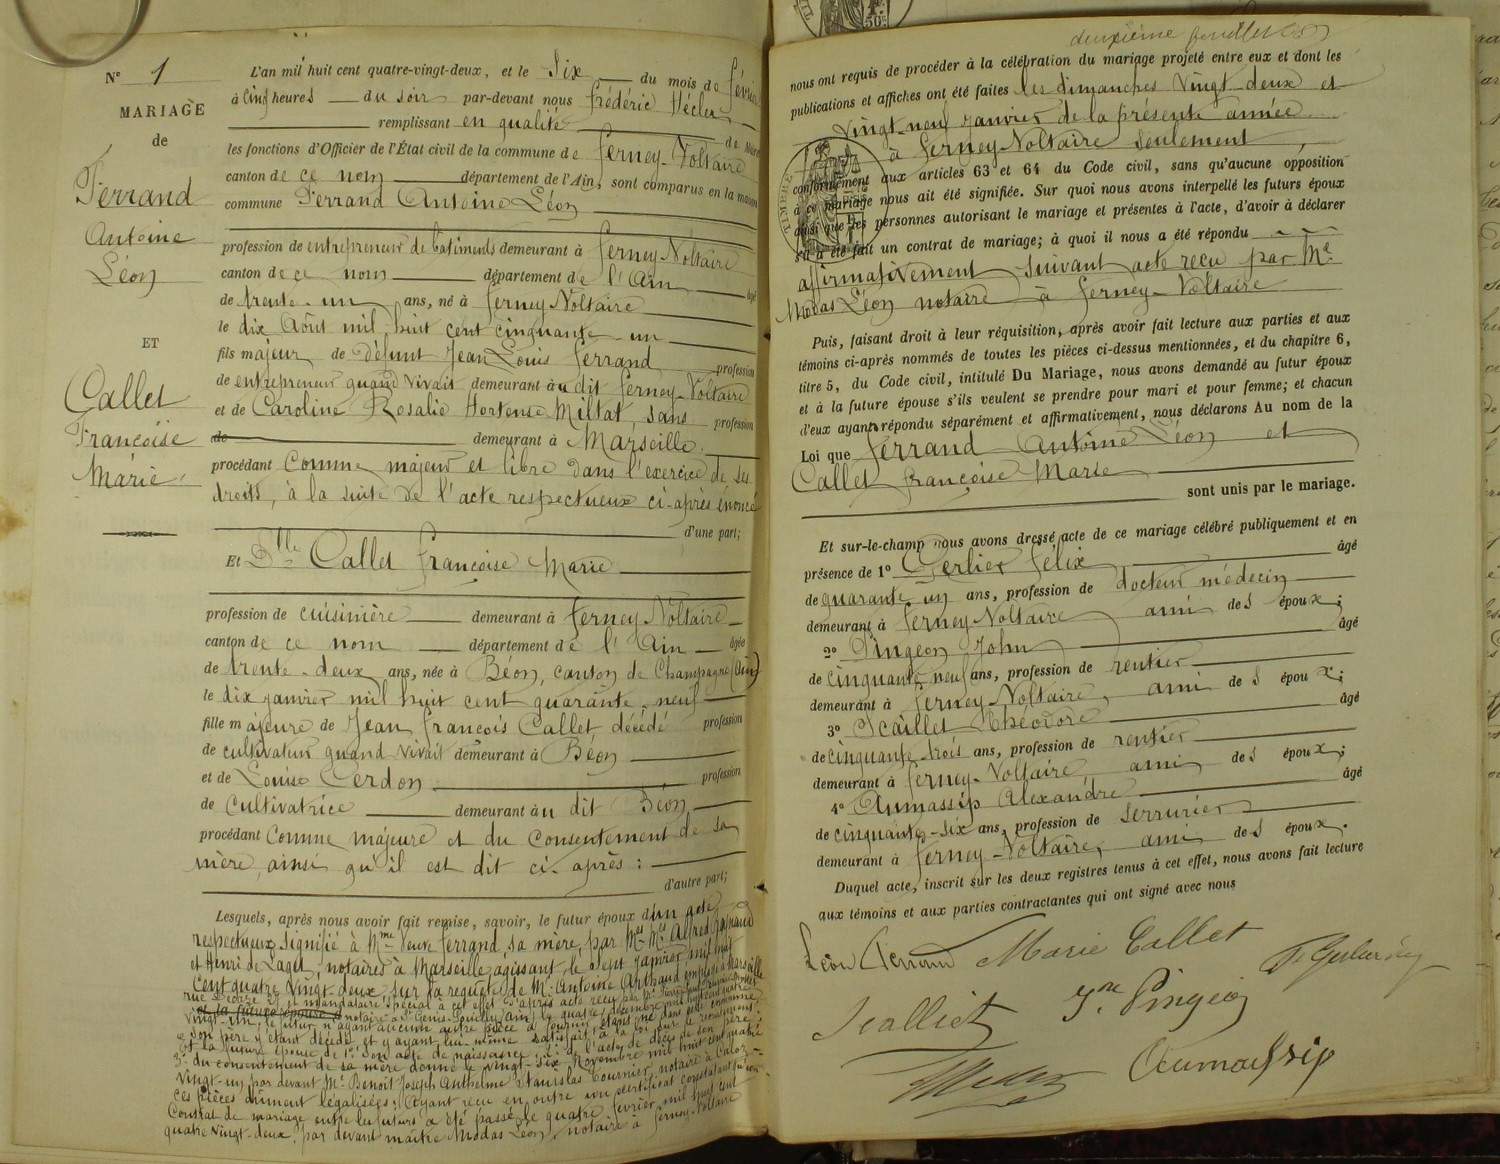 N° 1
MARIAGE
de
Ferrand
Antoine
Léon
ET
Callet
Françoise
Marie
L'an mil huit cent quatre-vingt-deux, et le Six du mois de février
à Cinq heures du soir par-devant nous Frédéric
remplissant en qualité de Maire
les fonctions d'Officier de l'État civil de la commune de Ferney-Voltaire
canton de ce nom département de l'Ain, sont comparus en la maison
commune Ferrand Antoine Léon
profession de entrepreneur de batiments demeurant à Ferney-Voltaire
canton de ce nom département de l'Ain âgé
de trente-un ans, né à Ferney Voltaire
le dix Août mil huit cent cinquante-un
fils majeur de défunt Jean Louis Ferrand profession
de entrepreneur quand vivait demeurant au dit Ferney-Voltaire
et de Caroline Rosalie Hortense Miltat, sans profession
de demeurant à Marseille.
procédant Comme majeur et libre dans l'exercice de ses
droits, à la suite de l'acte respectueux ci-après énoncé
d'une part;
Et Dlle Callet Françoise Marie
profession de cuisinière demeurant à Ferney Voltaire
canton de ce nom département de l'Ain âgée
de trente-deux ans, née à Béon, canton de Champagne (Ain)
le dix janvier mil huit cent quarante-neuf
fille majeure de Jean François Callet décédé profession
de cultivateur quand vivait demeurant à Béon
et de Louise Cerdon profession
de Cultivatrice demeurant au dit Béon
procédant Comme majeure et du Consentement de sa
mère, ainsi qu'il est dit ci-après :
d'autre part;
Lesquels, après nous avoir fait remise, savoir, le futur époux d'un acte
respectueux signifié à Mme Veuve Ferrand sa mère, par Mes Alfred
et Henri de Laget, notaires à Marseille agissant, le sept janvier mil huit
cent quatre vingt deux, sur la requête de Mr Antoine Arthaud employé à Marseille
rue mandataire spécial à cet effet d'après acte reçu par
notaire à St Genis-Pouilly (Ain) le quatre décembre mil huit cent quatre
vingt-un, le futur n'ayant aucune autre pièce à fournir étant né dans cette commune
son père y étant décédé et y ayant lui-même satisfait à la loi sur le recrutement.
Et la future épouse de 1° Son acte de naissance, 2° de l'acte de décès de son père
3° du consentement de sa mère donné le vingt-six Novembre mil huit cent quatre
Vingt-un par devant Me Benoit Joseph Anthelme Stanislas Tournier notaire à
ces pièces dûment légalisées; Ayant reçu en outre un certificat constatant qu'un
Contrat de mariage entre les futurs a été passé le quatre février mil huit cent
quatre vingt-deux, par devant maître Modas Léon, notaire à Ferney-Voltaire
deuxième
nous ont requis de procéder à la célébration du mariage projeté entre eux et dont les
publications et affiches ont été faites les dimanches Vingt-deux et
vingt-neuf janvier de la présente année
à Ferney Voltaire seulement,
conformément aux articles 63 et 64 du Code civil, sans qu'aucune opposition
à ce mariage nous ait été signifiée. Sur quoi nous avons interpellé les futurs époux
ainsi que les personnes autorisant le mariage et présentes à l'acte, d'avoir à déclarer
s'il a été fait un contrat de mariage; à quoi il nous a été répondu
affirmativement suivant acte reçu par Me
Modas Léon notaire à Ferney-Voltaire
Puis, faisant droit à leur réquisition, après avoir fait lecture aux parties et aux
témoins ci-après nommés de toutes les pièces ci-dessus mentionnées, et du chapitre 6,
titre 5, du Code civil, intitulé Du Mariage, nous avons demandé au futur époux
et à la future épouse s'ils veulent se prendre pour mari et pour femme; et chacun
d'eux ayant répondu séparément et affirmativement, nous déclarons Au nom de la
Loi que Ferrand Antoine Léon et
Callet Françoise Marie
sont unis par le mariage.
Et sur-le-champ nous avons dressé acte de ce mariage célébré publiquement et en
présence de 1° Gerlier Félix âgé
de quarante un ans, profession de docteur médecin
demeurant à Ferney Voltaire ami des époux;
2° Pingeon John âgé
de cinquante neuf ans, profession de rentier
demeurant à Ferney-Voltaire, ami des époux;
3° Scaillet Théodore âgé
de cinquante-trois ans, profession de rentier
demeurant à Ferney-Voltaire, ami des époux;
4° Aumassip Alexandre âgé
de cinquante-six ans, profession de Serrurier
demeurant à Ferney-Voltaire, ami des époux.
Duquel acte, inscrit sur les deux registres tenus à cet effet, nous avons fait lecture
aux témoins et aux parties contractantes qui ont signé avec nous
Léon Ferrand Marie Callet
Jn Pingeon
Aumassip